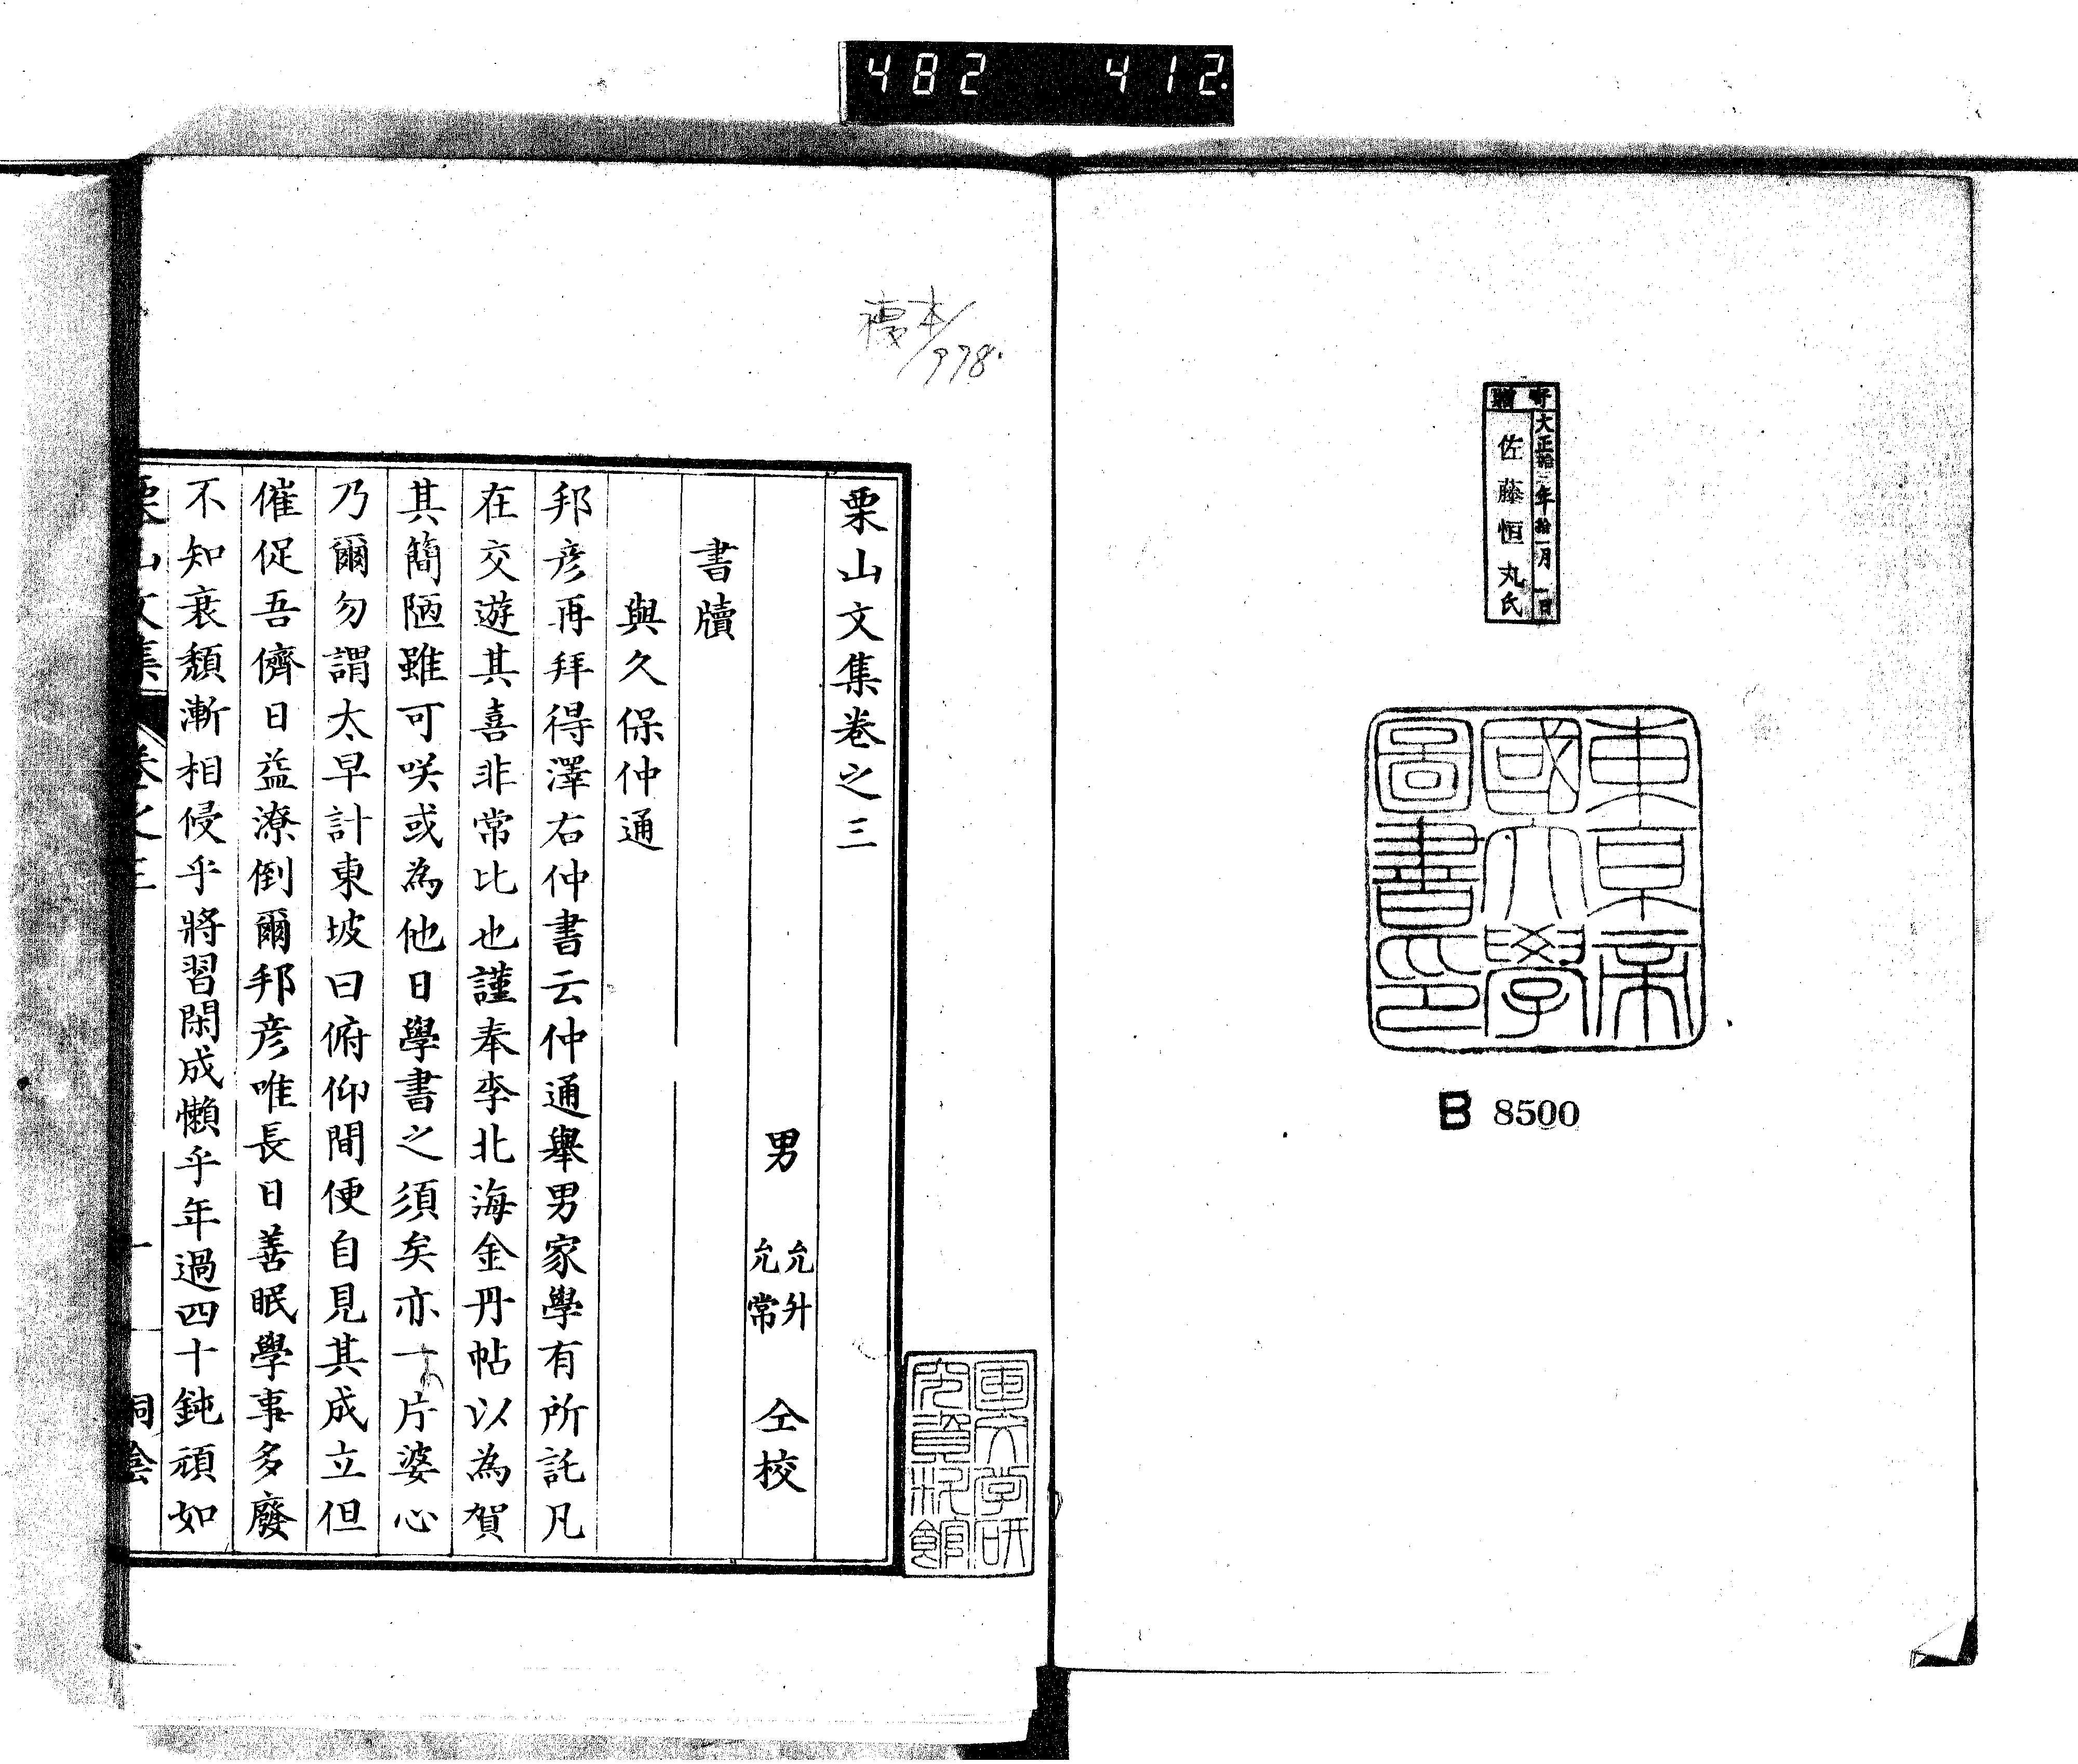 482 412.
寄贈
大正拾三年拾一月一日
佐藤恒丸氏
東京帝
國大學
圖書印
B 8500
複本/978.
栗山文集卷之三
男 允升 允常 仝校
書牘
與久保仲通
邦彦再拜得澤右仲書云仲通舉男家學有所託凡
在交遊其喜非常比也謹奉李北海金丹帖以為賀
其簡陋雖可咲或為他日學書之須矣亦一片婆心
乃爾勿謂太早計東坡曰俯仰間便自見其成立但
催促吾儕日益潦倒爾邦彦唯長日善眠學事多廢
不知衰頽漸相侵乎將習閑成懶乎年過四十鈍頑如
栗山文集 卷之三 一 桐陰
国文学研
究資料館